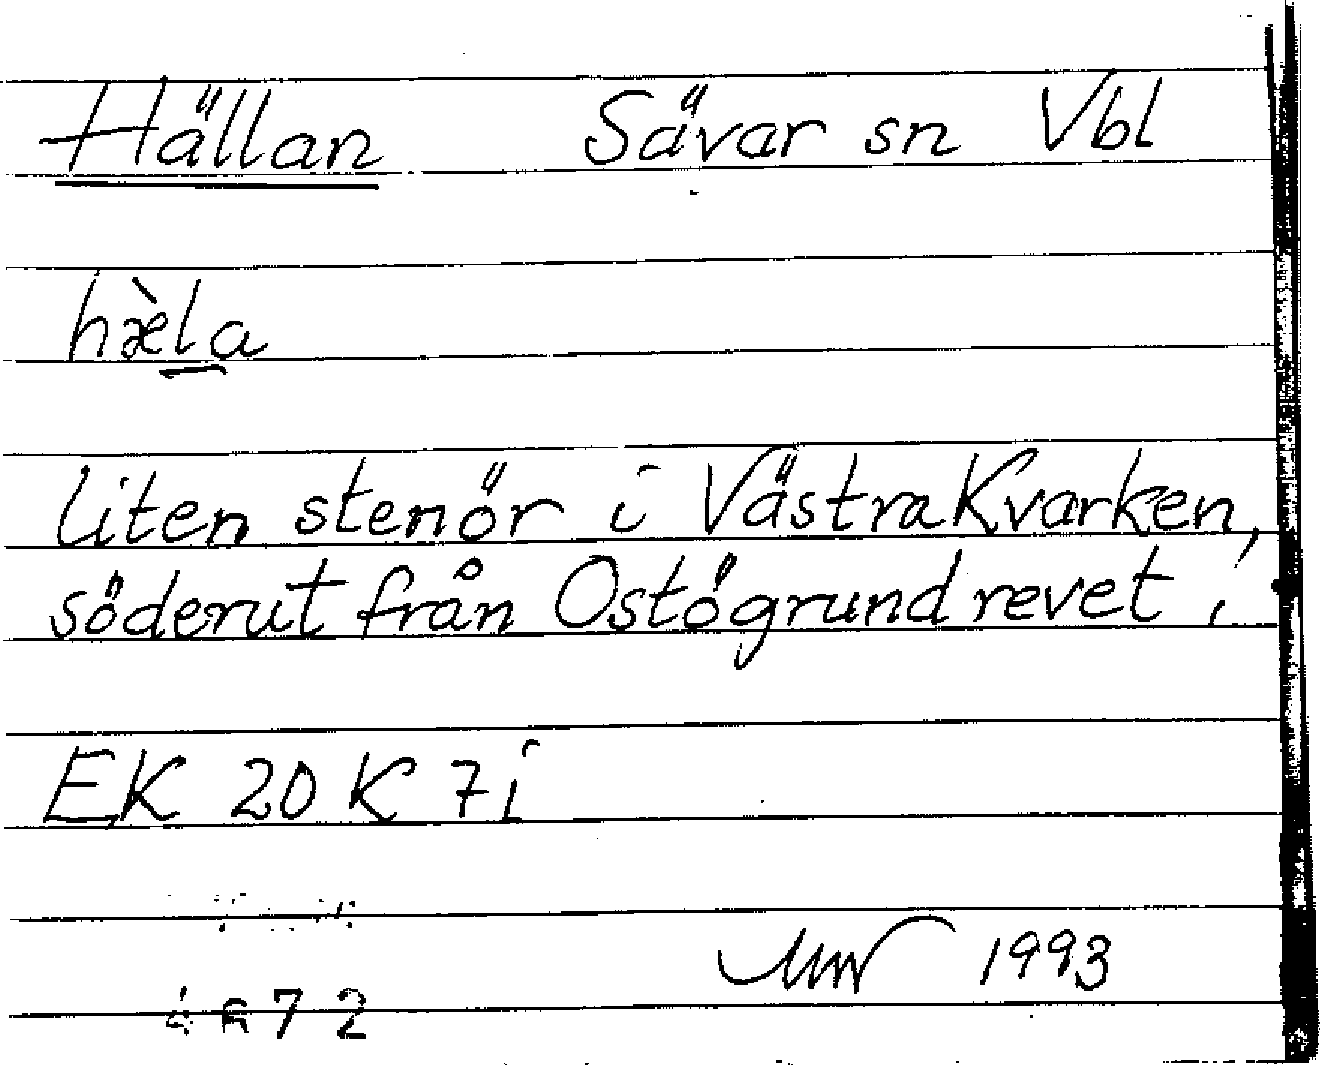 Hällan Sävar sn Vbl
hæ̀l̲a
liten stenör i Västra Kvarken,
söderut från Ostögrundrevet.
EK 20 K 7i
1993
72